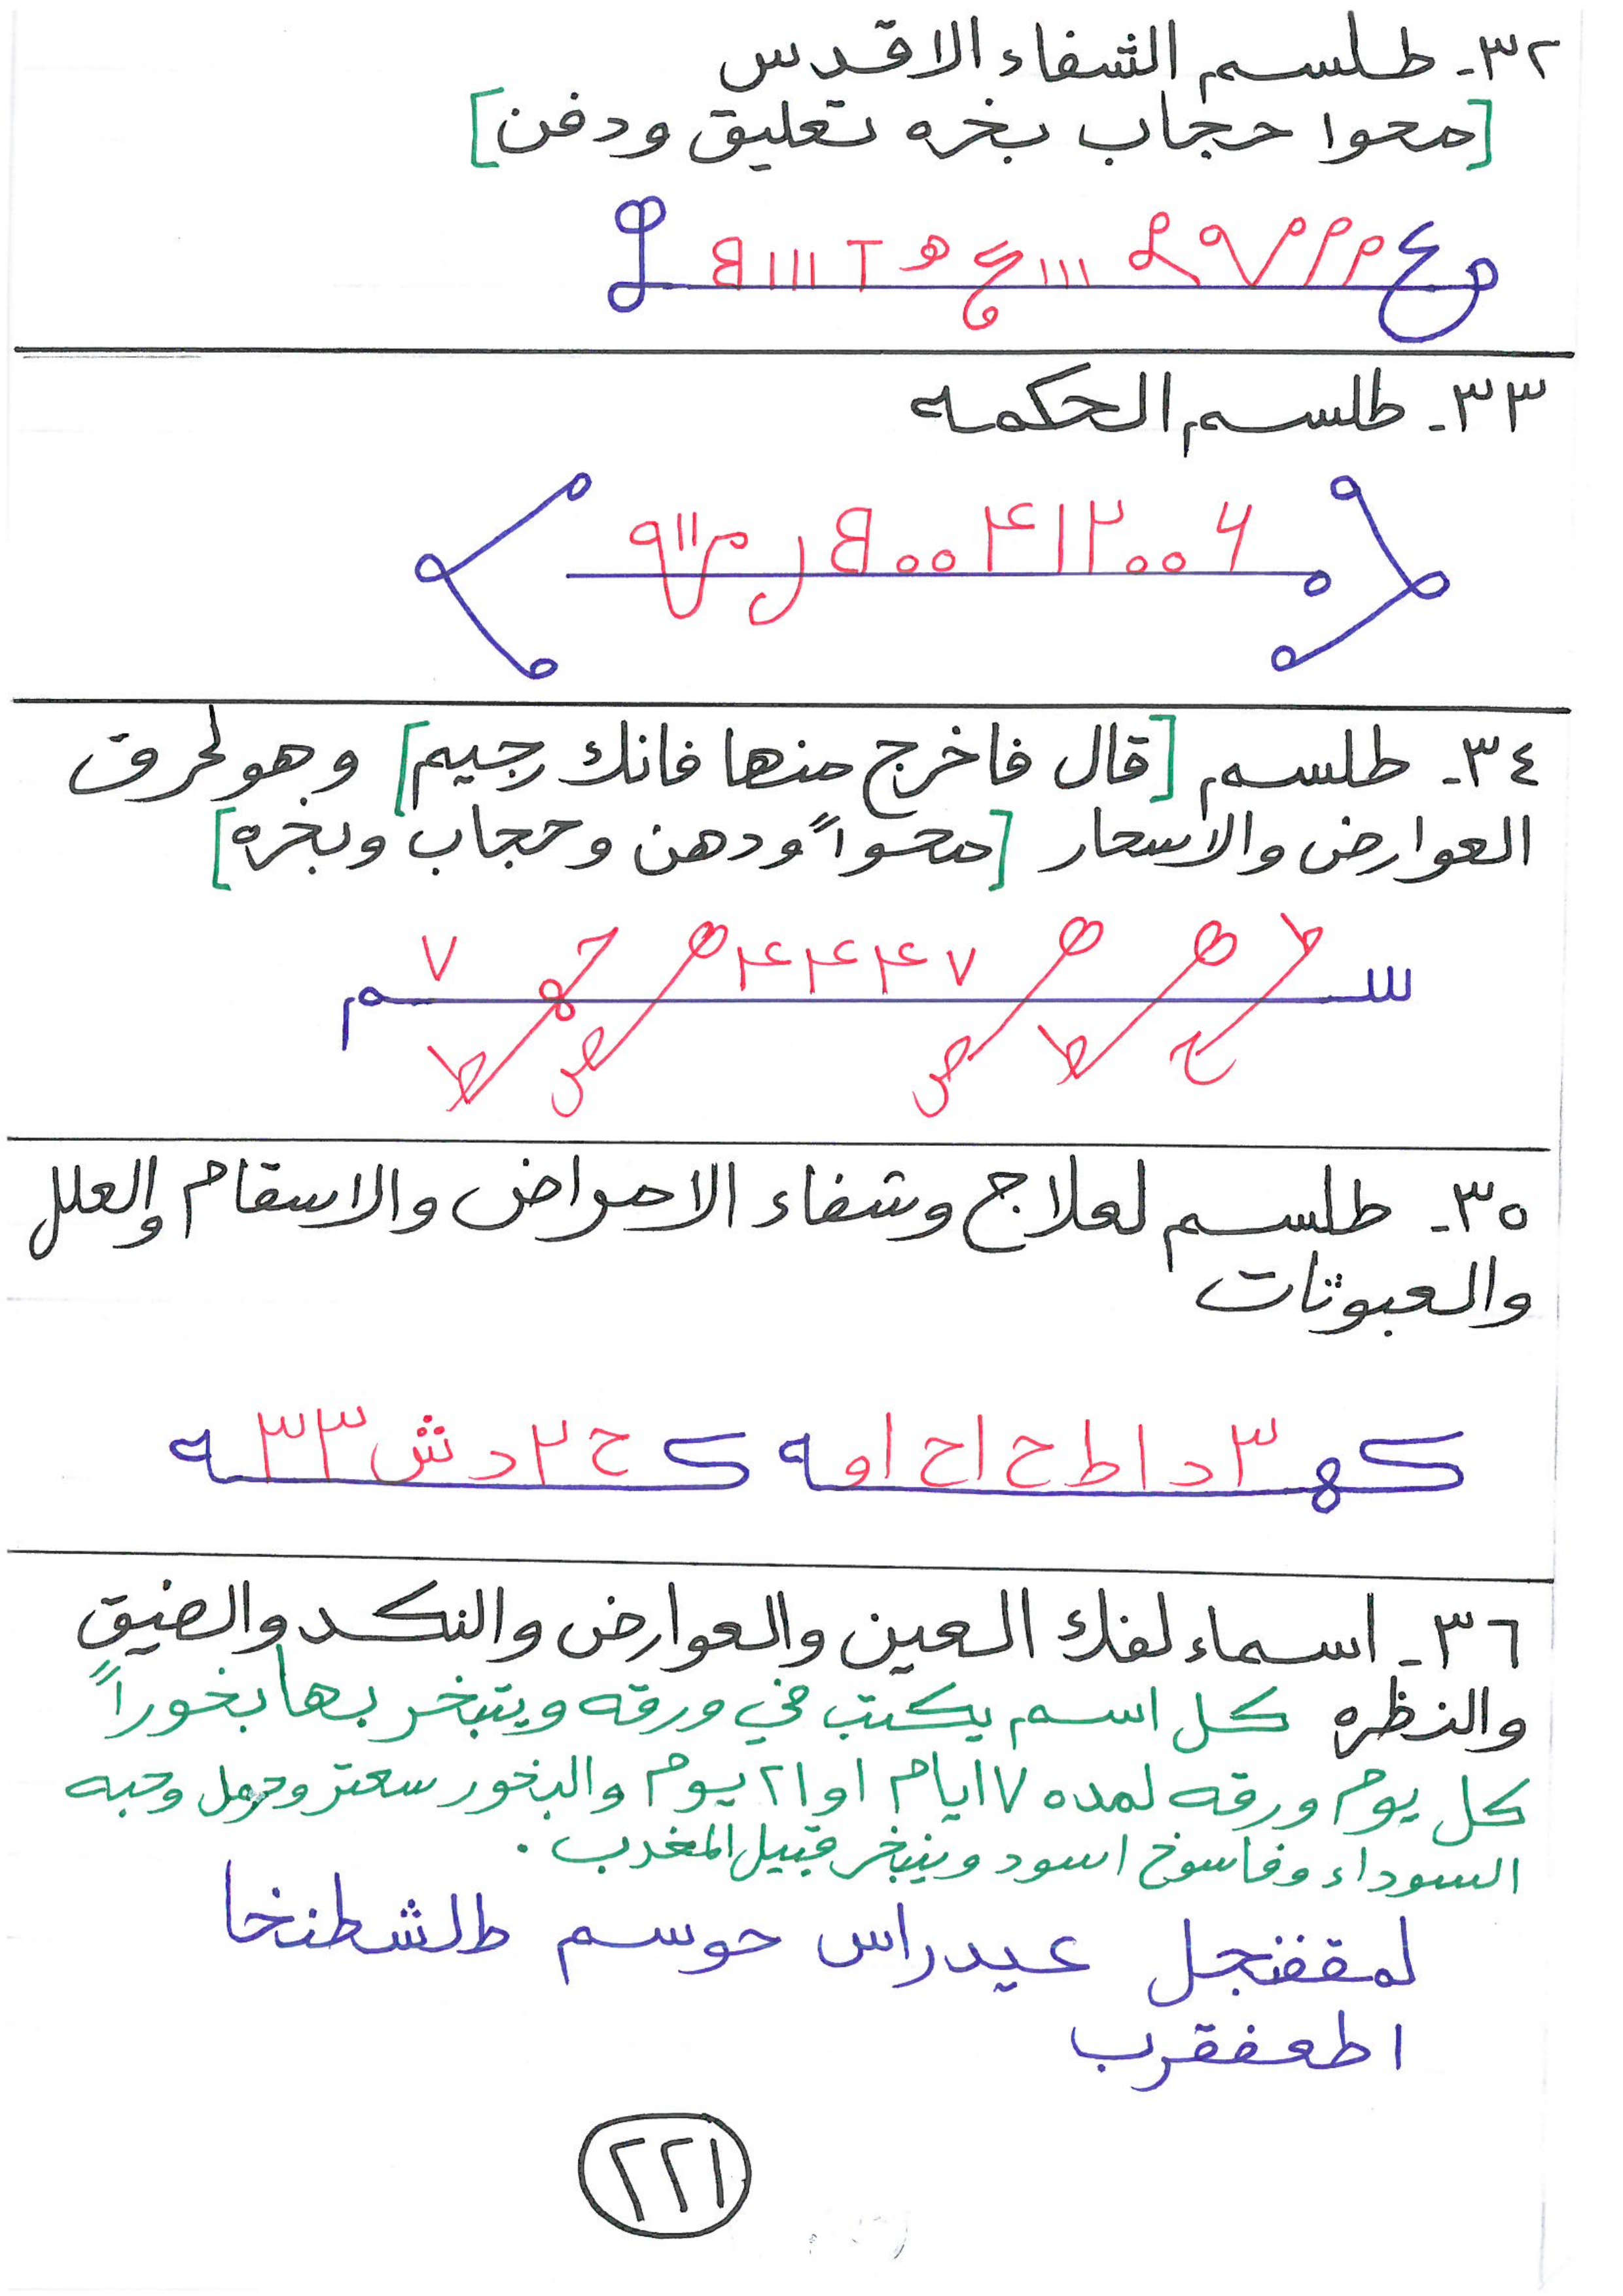 ٣٢- طلسم الشفاء الاقدس
[محوا حجاب بخره تعليق ودفن]
٣٣- طلسم الحكمه
٣٤- طلسم [قال فاخرج منها فانك رجيم] وهو لحرق
العوارض والاسحار [محواً ودهن وحجاب وبخره]
٣٥- طلسم لعلاج وشفاء الامراض والاسقام والعلل
والعبوثات
كهـ ٣ د ا ط ح ا ح ا و ه ك ح ٢ د ش ٣ ٣ ه
٣٦- اسماء لفك العين والعوارض والنكد والضيق
والنظره كل اسم يكتب في ورقه ويتبخر بها بخوراً
كل يوم ورقه لمده ٧ ايام او ٢١ يوم والبخور سعتر وحرمل وحبه
السوداء وفاسوخ اسود ويتبخر قبيل المغرب .
لمقفنجل عيدراس حوسم طلشطنخا
اطعفقرب
٢٢١